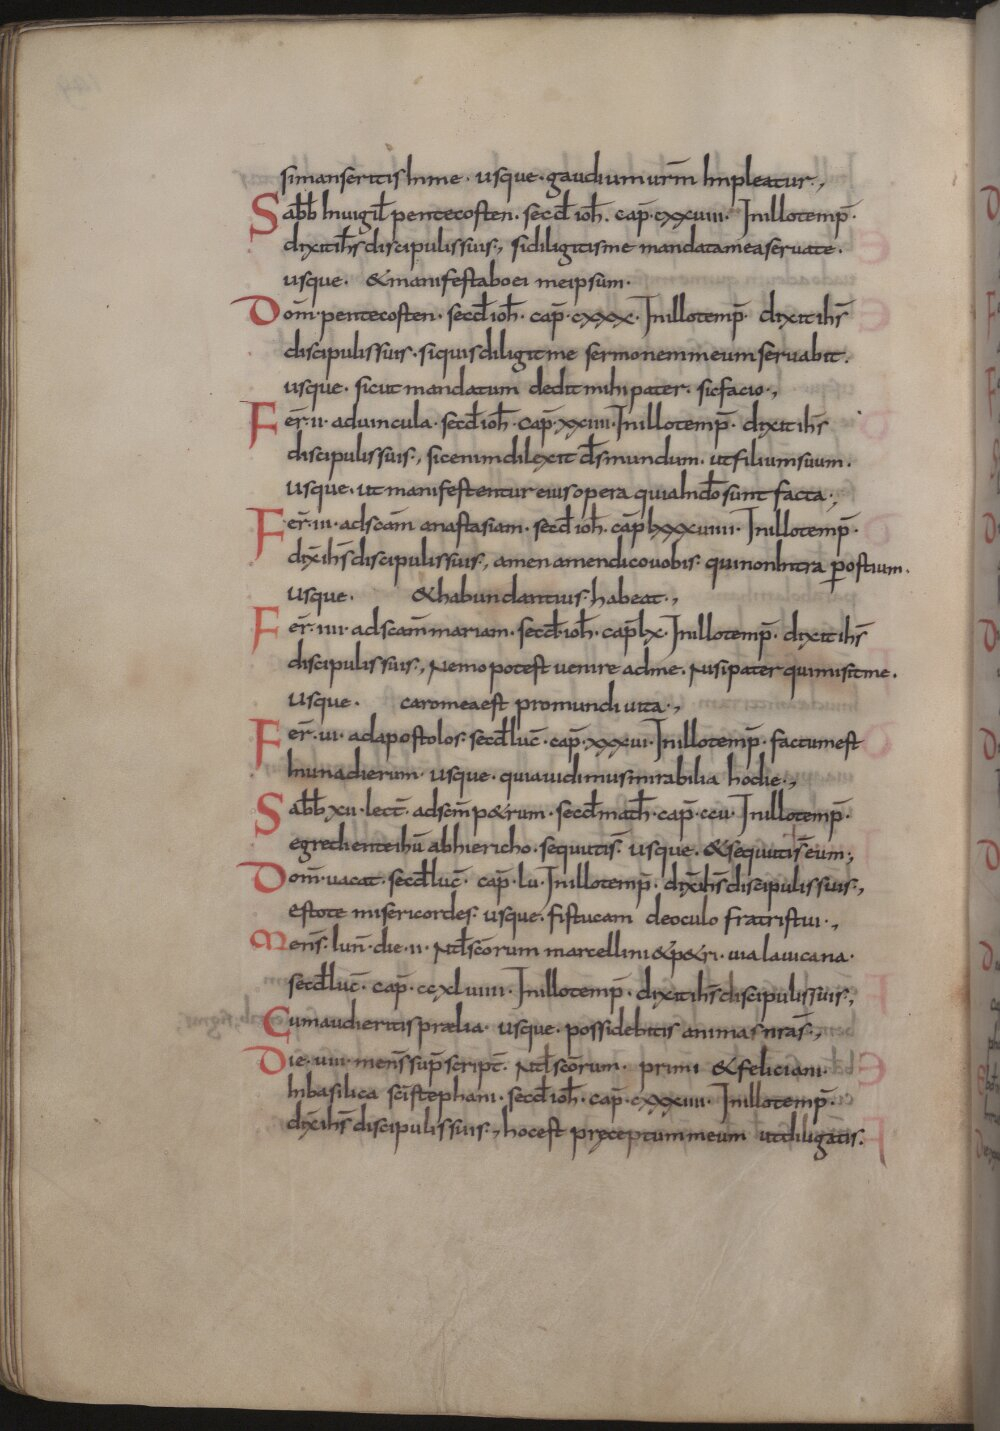 si manseritis In me · usque · gaudium urm̄ Impleatur·,
Sabb̄ In uigil̄ pentecosten · secd̄ ioh̄ · cap̄ · cxxuiiii · In illo temp̄ ·
dixit ih̄s discipulis suis·, si diligitis me mandata mea seruate ·
usque · & manifestabo ei meipsum ·
Dom̄ · pentecosten · secd̄ ioh̄ · cap̄ · cxxx · In illo temp̄ · dixit ih̄s
discipulis suis · si quis diligit me sermonem meum seruabit ·
usque · sicut mandatum dedit mihi pater · sic facio·,
Fer̄ · ii · ad uincula · secd̄ ioh̄ · cap̄ · xxiiii · In illo temp̄ · dixit ih̄s
discipulis suis·, sic enim dilexit d̄s mundum · ut filium suum ·
usque · ut manifestentur eius opera quia In dō sunt facta·,
Fer̄ · iii · ad scam̄ anastasiam · secd̄ ioh̄ · cap̄ lxxxuiiii · In illo temp̄ ·
dix̄ ih̄s discipulis suis·, amen amen dico uobis · qui non Intra p̄ ostium ·
usque · & habundantius habeat·,
Fer̄ · iiii · ad scam̄ mariam · secd̄ ioh̄ · cap̄ lx · In illo temp̄ · dixit ih̄s
discipulis suis·, Nemo potest uenire ad me · Nisi pater qui misit me ·
usque · caro mea est pro mundi uita·,
Fer̄ · ui · ad apostolos · secd̄ luc̄ · cap̄ · xxxui · In illo temp̄ · factum est
In una dierum · usque · quia uidimus mirabilia hodie·,
Sabb̄ xii · lect̄ · ad scm̄ p&rum · secd̄ math̄ · cap̄ · ccu · In illo temp̄ ·
egrediente ih̄u ab hiericho · sequutis̄ · usque · & sequutis̄ eum·,
Dom̄ · uacat · secd̄ luc̄ · cap̄ · lu · In illo temp̄ · dix̄ ih̄s discipulis suis·,
estote misericordes · usque · fistucam de oculo fratris tui·,
Mens̄ · iun̄ · die · ii · Nt̄l scōrum marcellini & p&ri · uia lauicana ·
secd̄ luc̄ · cap̄ · ccxluiiii · In illo temp̄ · dixit ih̄s discipulis suis·,
Cum audieritis prælia · usque · possidebitis animas ur̄as·,
Die · uiiii · mens̄ sup̄script̄ · Nt̄l scōrum · primi & feliciani ·
In basilica sc̄i stephani · secd̄ ioh̄ · cap̄ · cxxxiiii · In illo temp̄ ·
dix̄ ih̄s discipulis suis·, hoc est pręceptum meum ut diligatis ·